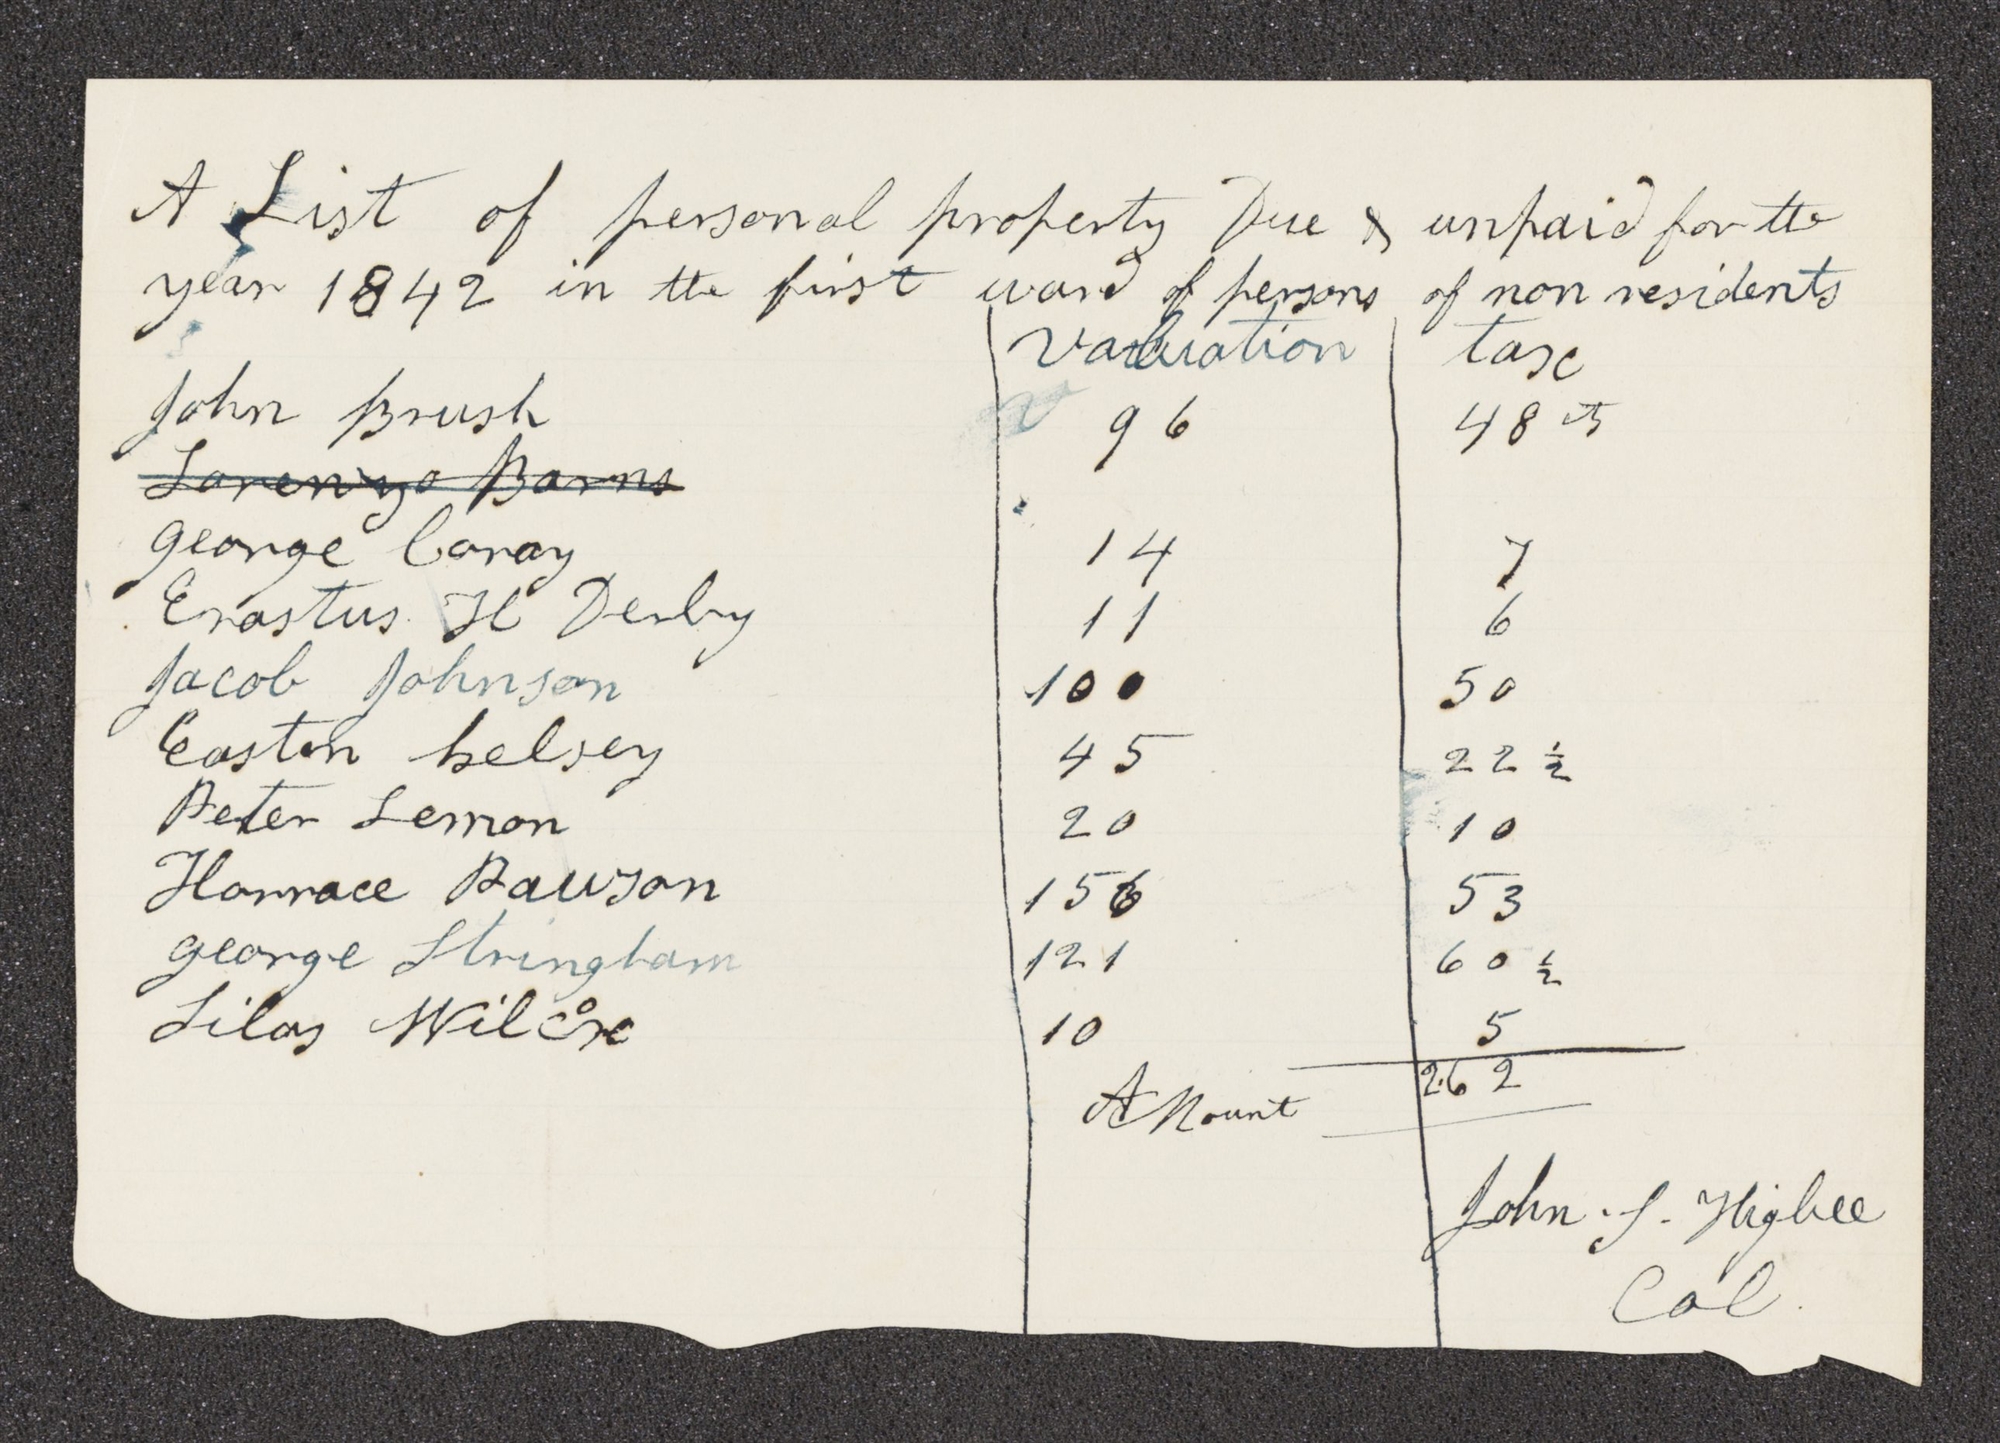 A List of personal property Due & unpaid for the
year 1842 in the first ward of persons of non residents
Valuation tax
John Brush 96 48 cts
Lorenzo Barns
george Coray 14 7
Erastus H Derby 11 6
Jacob Johnson 100 50
Easton kelsey 45 22 ½
Peter Lemon 20 10
Horrace Rawson 156 53
george Stringham 121 60 ½
Silas Wilcox 10 5
AMount 2.62
John . S . Higbee
Col.